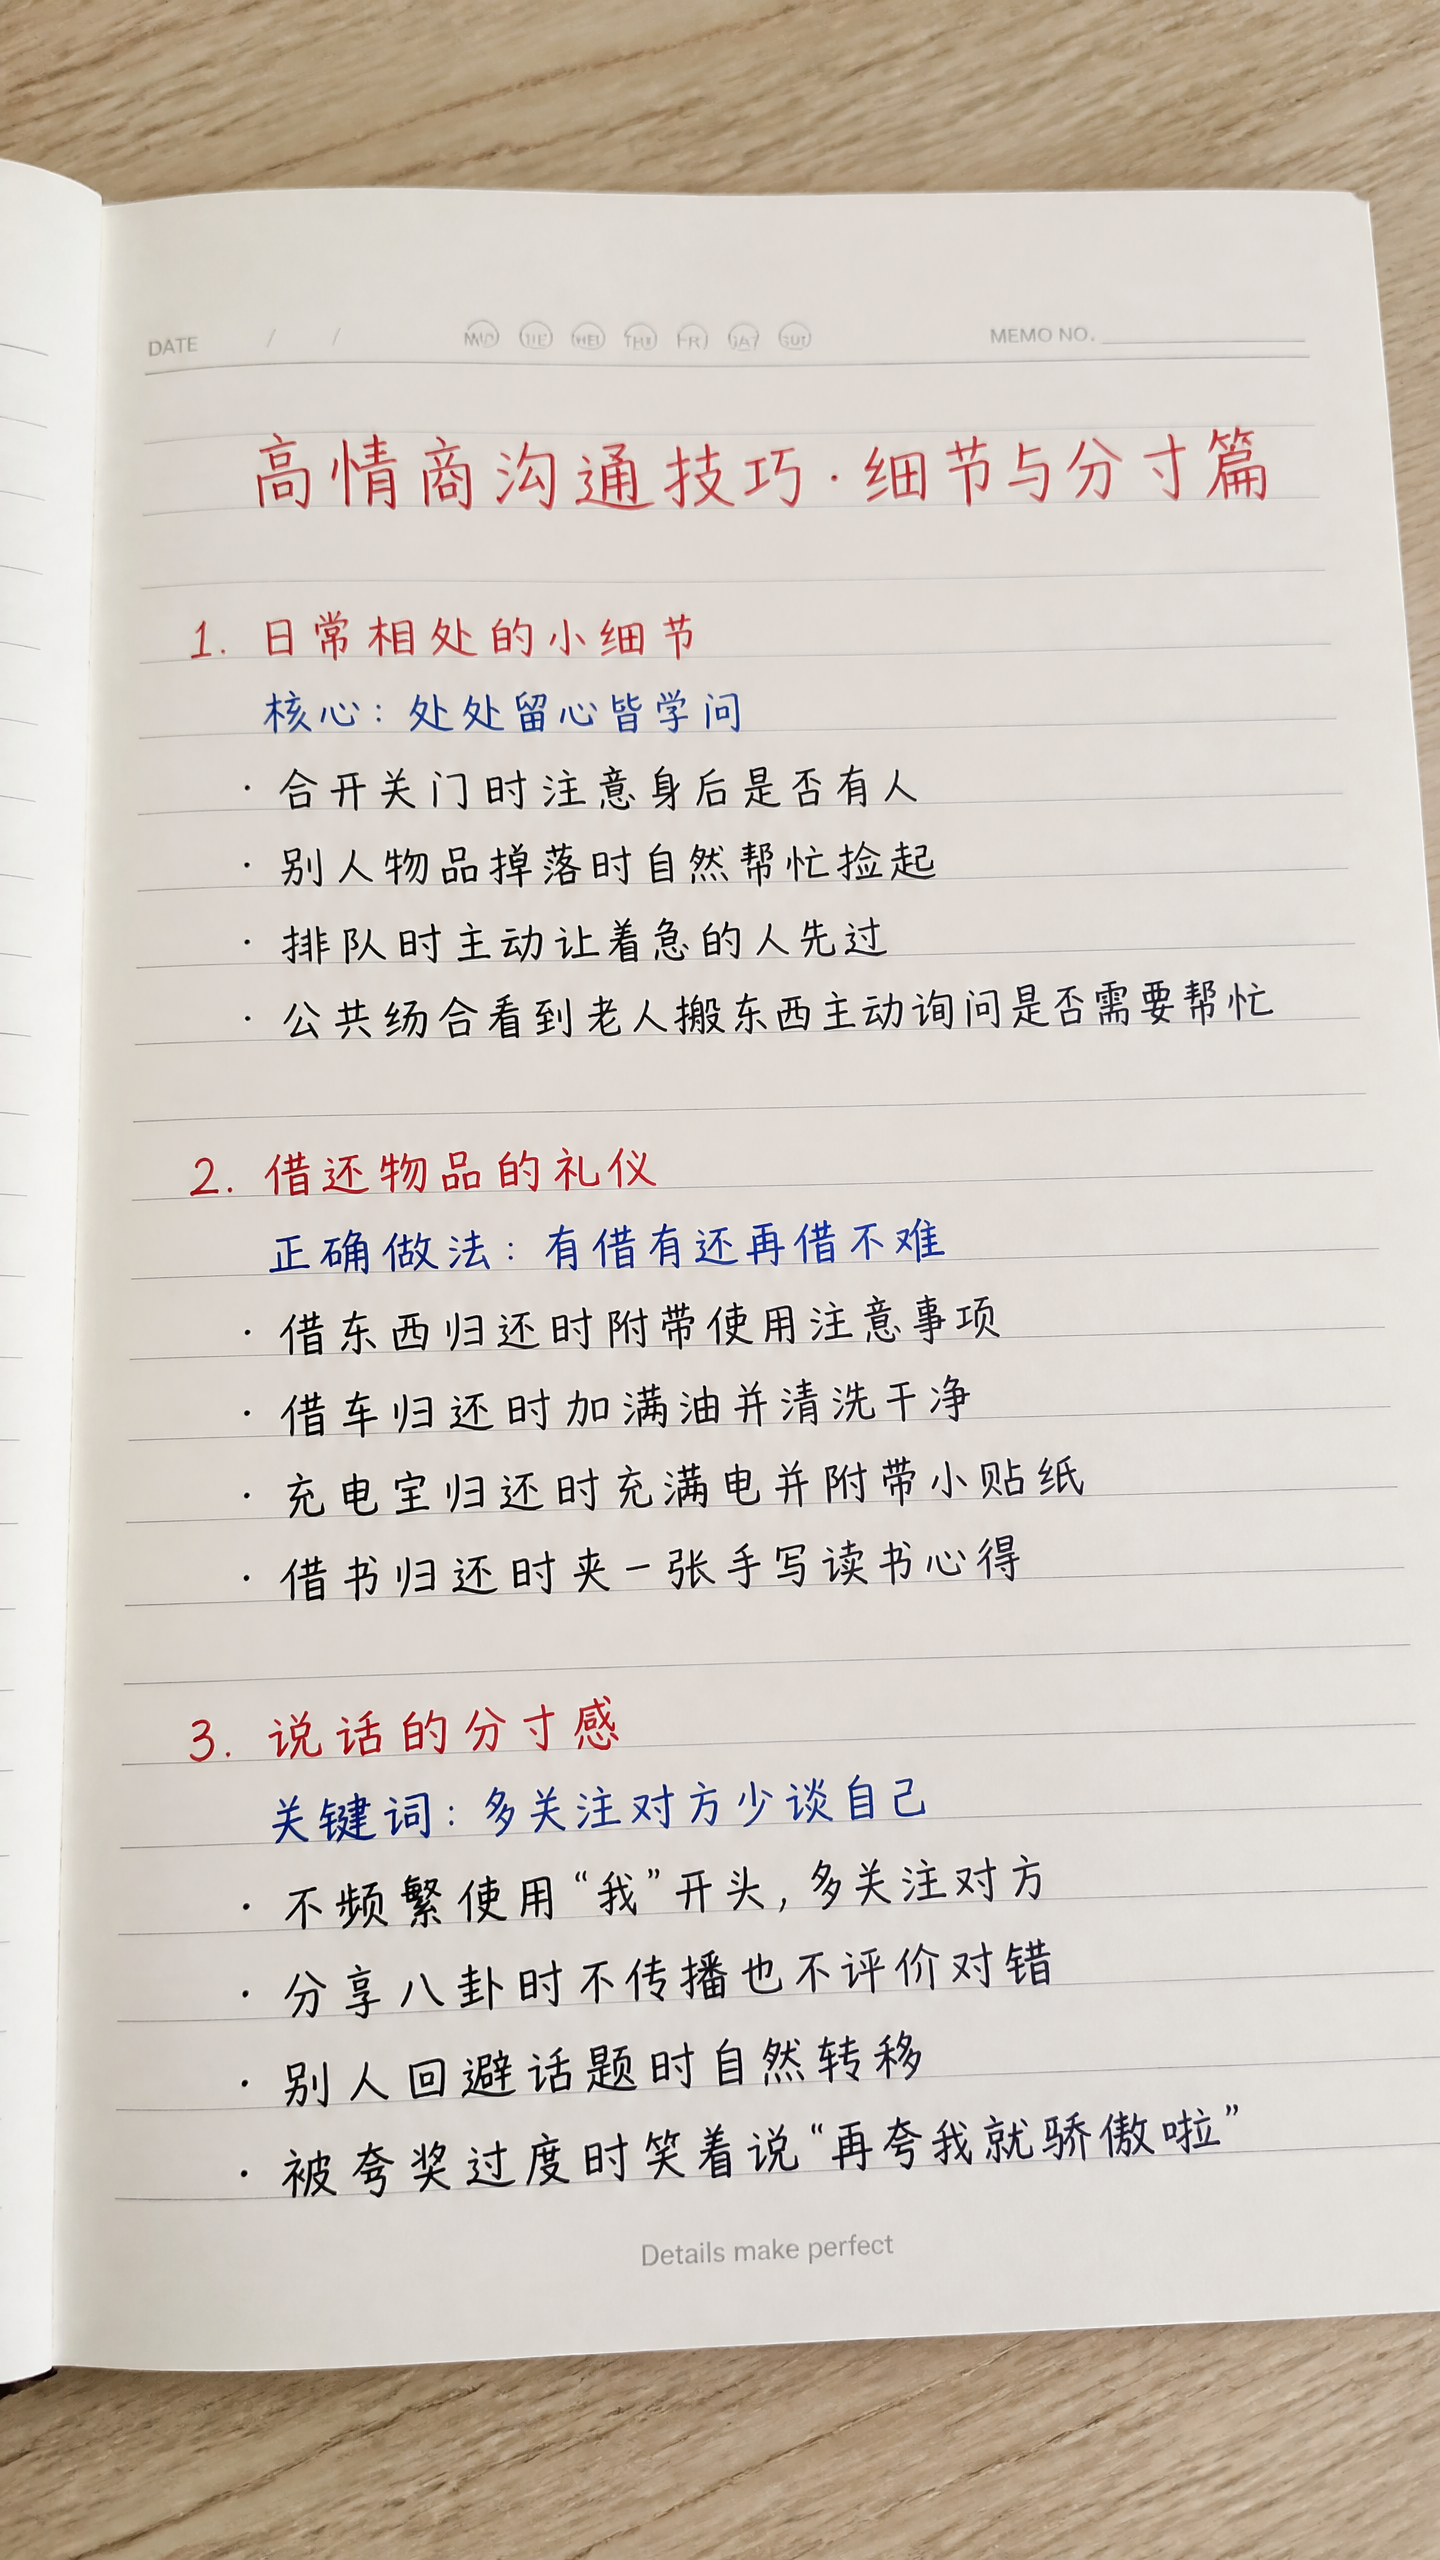 DATE / / MEMO NO.
高情商沟通技巧·细节与分寸篇
1. 日常相处的小细节
核心：处处留心皆学问
· 合开关门时注意身后是否有人
· 别人物品掉落时自然帮忙捡起
· 排队时主动让着急的人先过
· 公共场合看到老人搬东西主动询问是否需要帮忙
2. 借还物品的礼仪
正确做法：有借有还再借不难
· 借东西归还时附带使用注意事项
· 借车归还时加满油并清洗干净
· 充电宝归还时充满电并附带小贴纸
· 借书归还时夹一张手写读书心得
3. 说话的分寸感
关键词：多关注对方少谈自己
· 不频繁使用“我”开头，多关注对方
· 分享八卦时不传播也不评价对错
· 别人回避话题时自然转移
· 被夸奖过度时笑着说“再夸我就骄傲啦”
Details make perfect